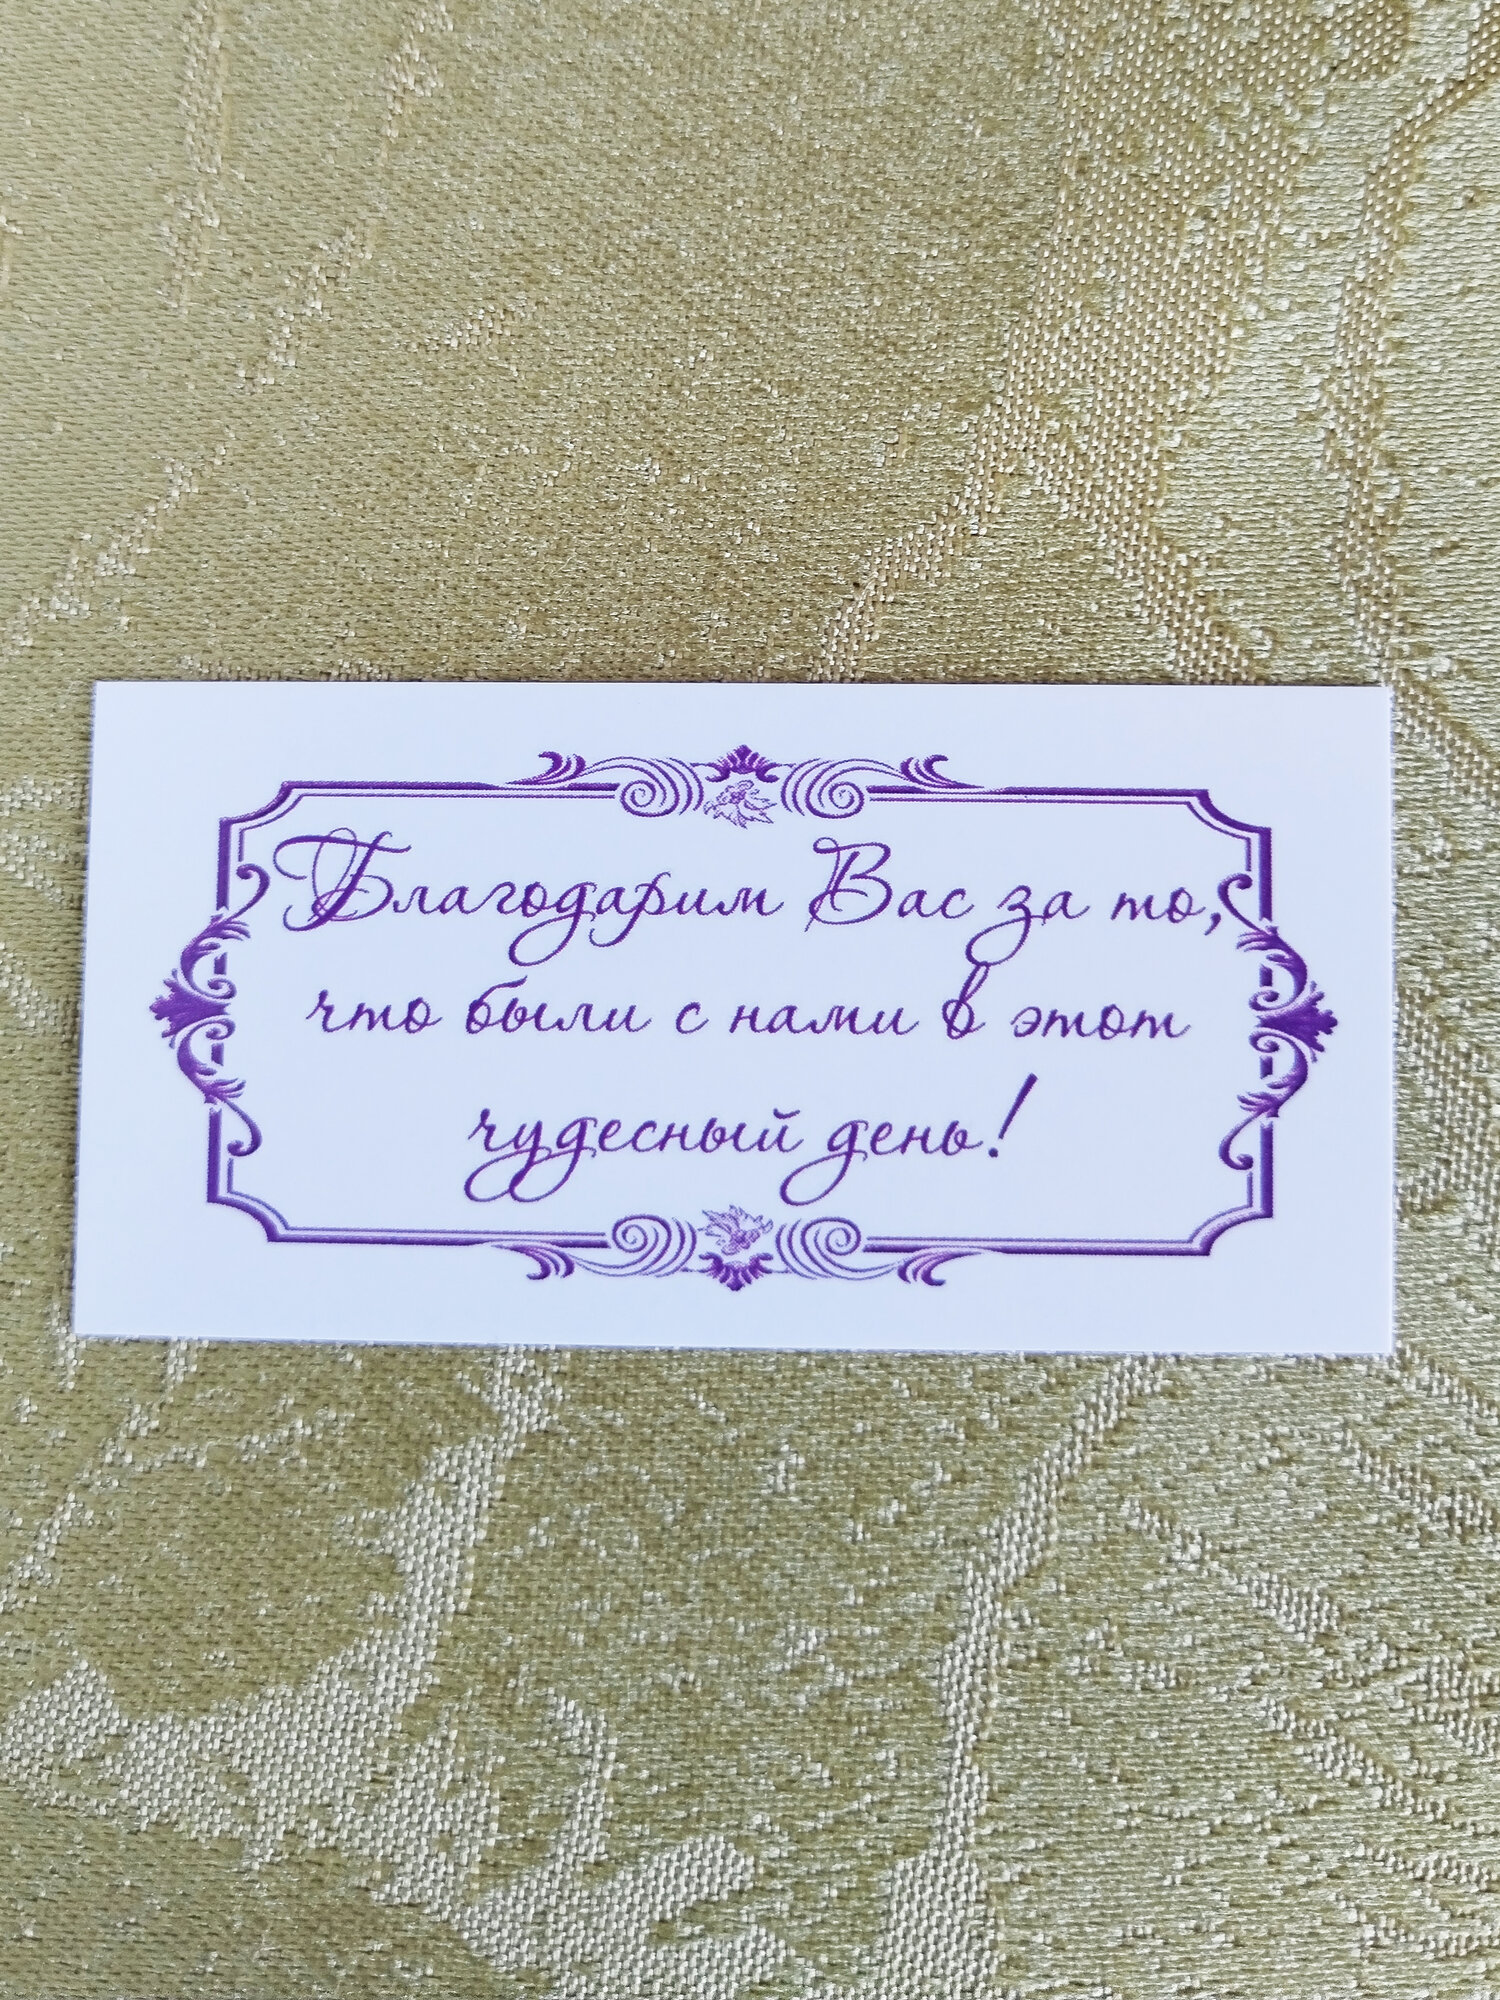 Благодарим Вас за то,
что были с нами в этот
чудесный день!